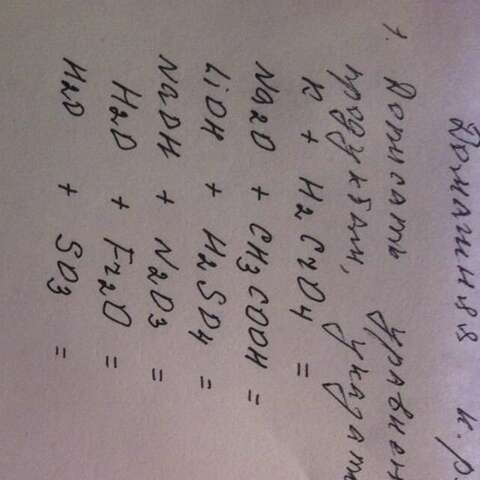 Домашняя к.р.
1. Дописать уравнен
продуктами, указат
K + H2C2O4 =
Na2O + CH3COOH =
LiOH + H2SO4 =
NaOH + N2O3 =
H2O + Fr2O =
H2O + SO3 =